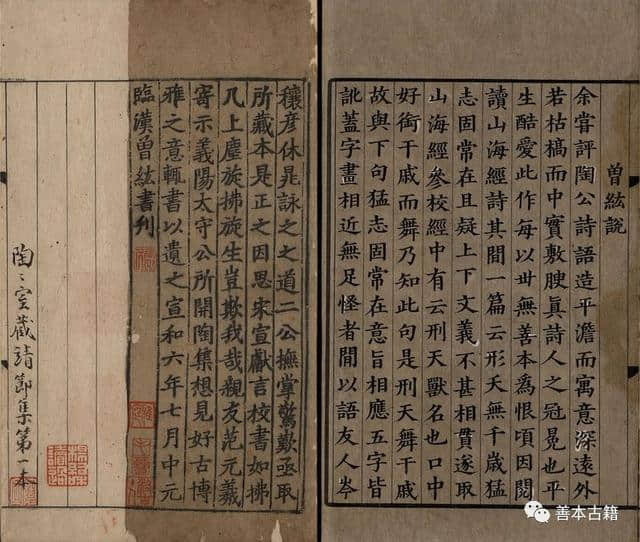 曾紘說
余嘗評陶公詩語造平澹而寓意深遠外
若枯槁而中實敷腴真詩人之冠冕也平
生酷愛此作每以丗無善本為恨頃因閱
讀山海經詩其間一篇云形天無千歲猛
志固常在且疑上下文義不甚相貫遂取
山海經參校經中有云刑天獸名也口中
好銜干戚而舞乃知此句是刑天舞干戚
故與下句猛志固常在意旨相應五字皆
訛蓋字畫相近無足怪者閒以語友人岑
穰彥休晁詠之之道二公撫掌驚歎亟取
所藏本是正之因思宋宣獻言校書如拂
几上塵旋拂旋生豈欺我哉親友范元羲
寄示義陽太守公所開陶集想見好古博
雅之意輒書以遺之宣和六年七月中元
臨漢曾紘書刊
陶〻室藏靖節集第一本
善本古籍